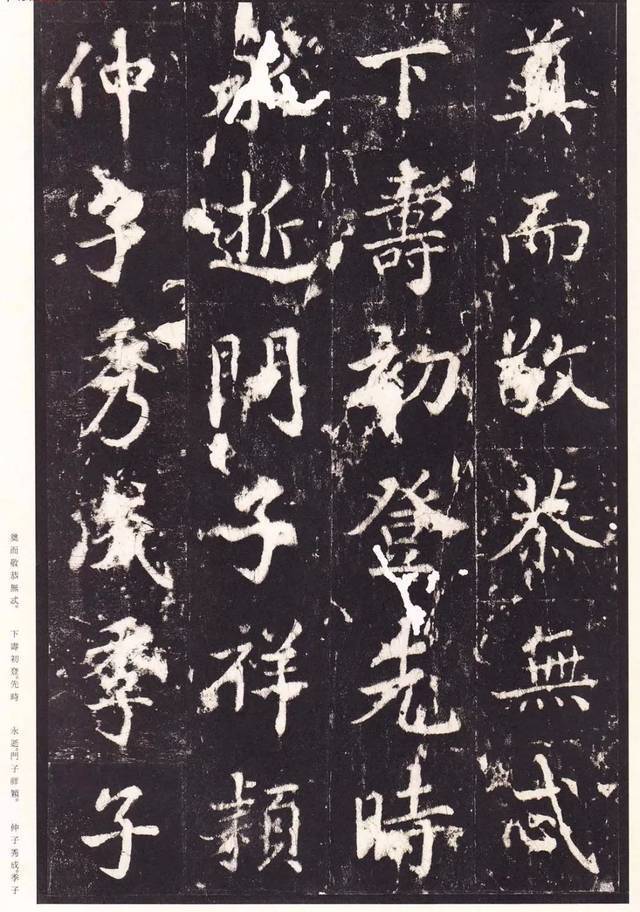 奠而敬恭無忒
下壽初登先時
永逝門子祥穎
仲子秀成季子
奠而敬恭無忒。 下壽初登。先時 永逝。門子祥穎。 仲子秀成。季子